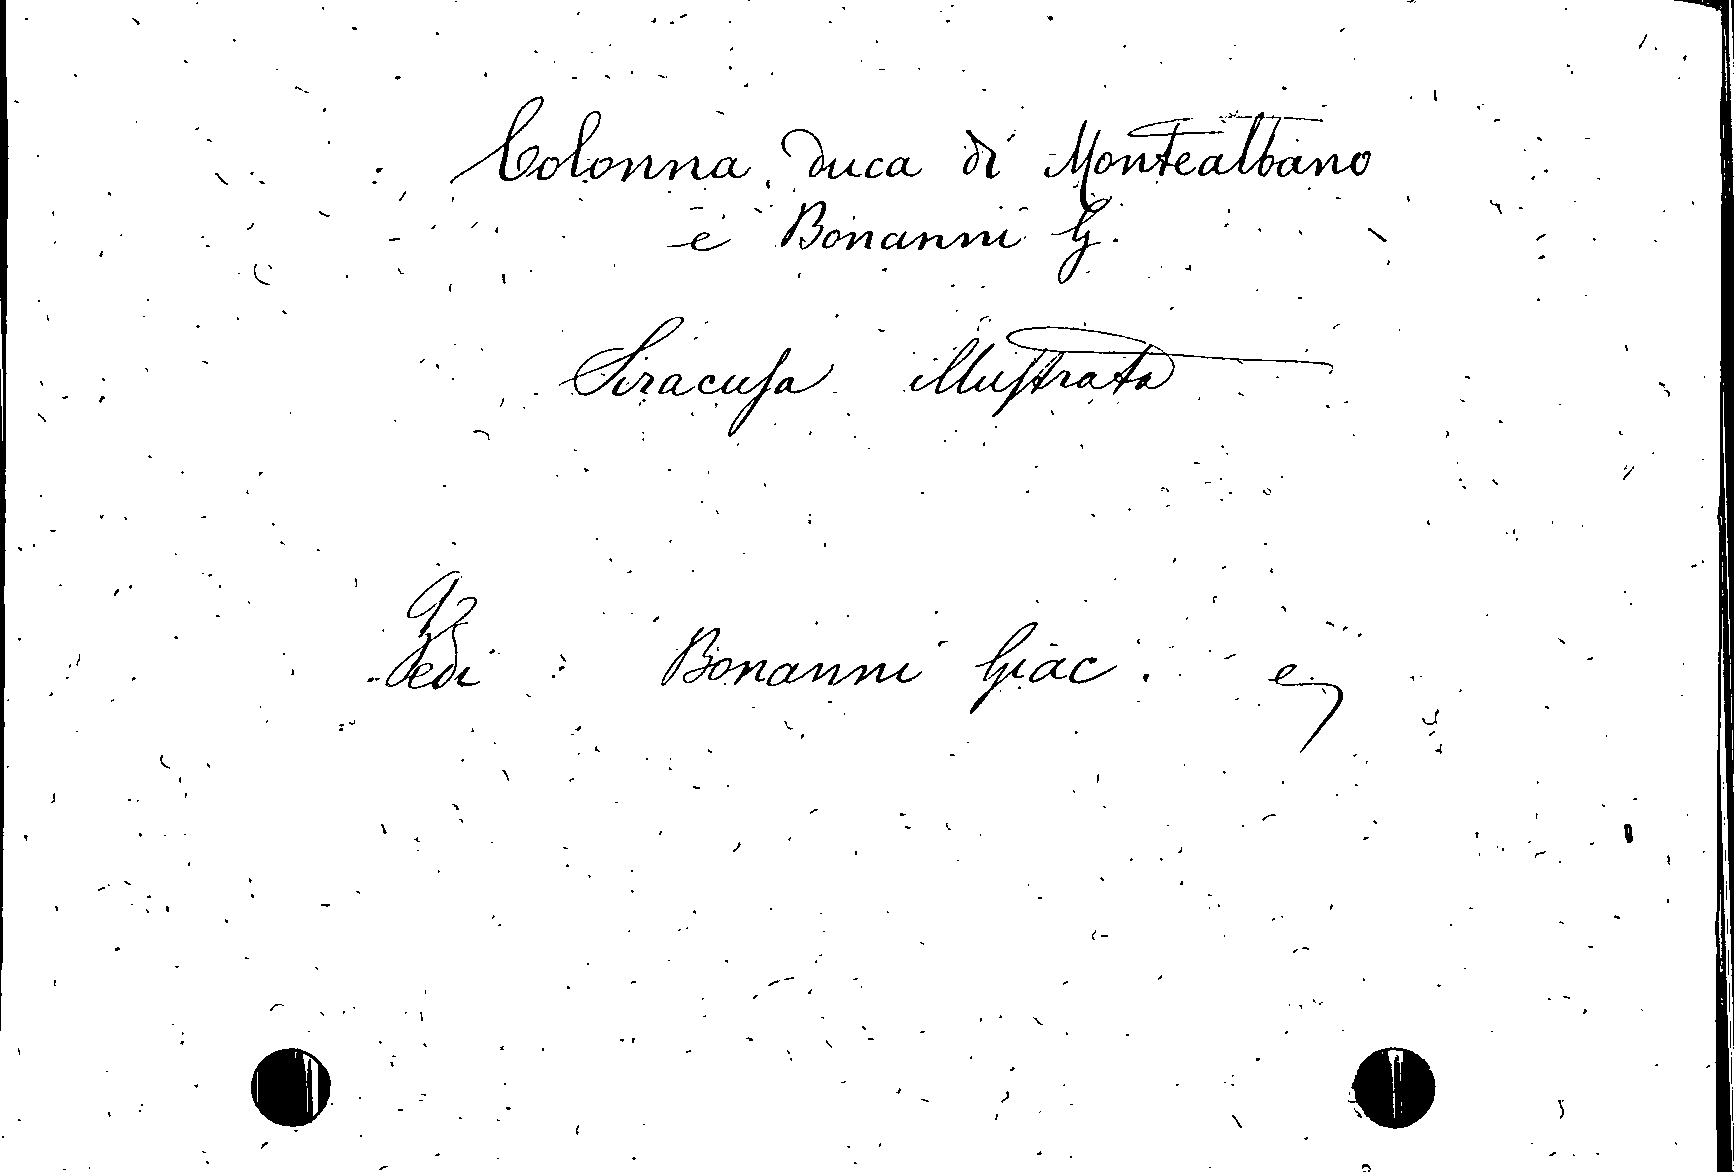 Colonna, duca di Montealbano
e Bonanni G.
Siracusa illustrata
Vedi : Bonanni Giac. e